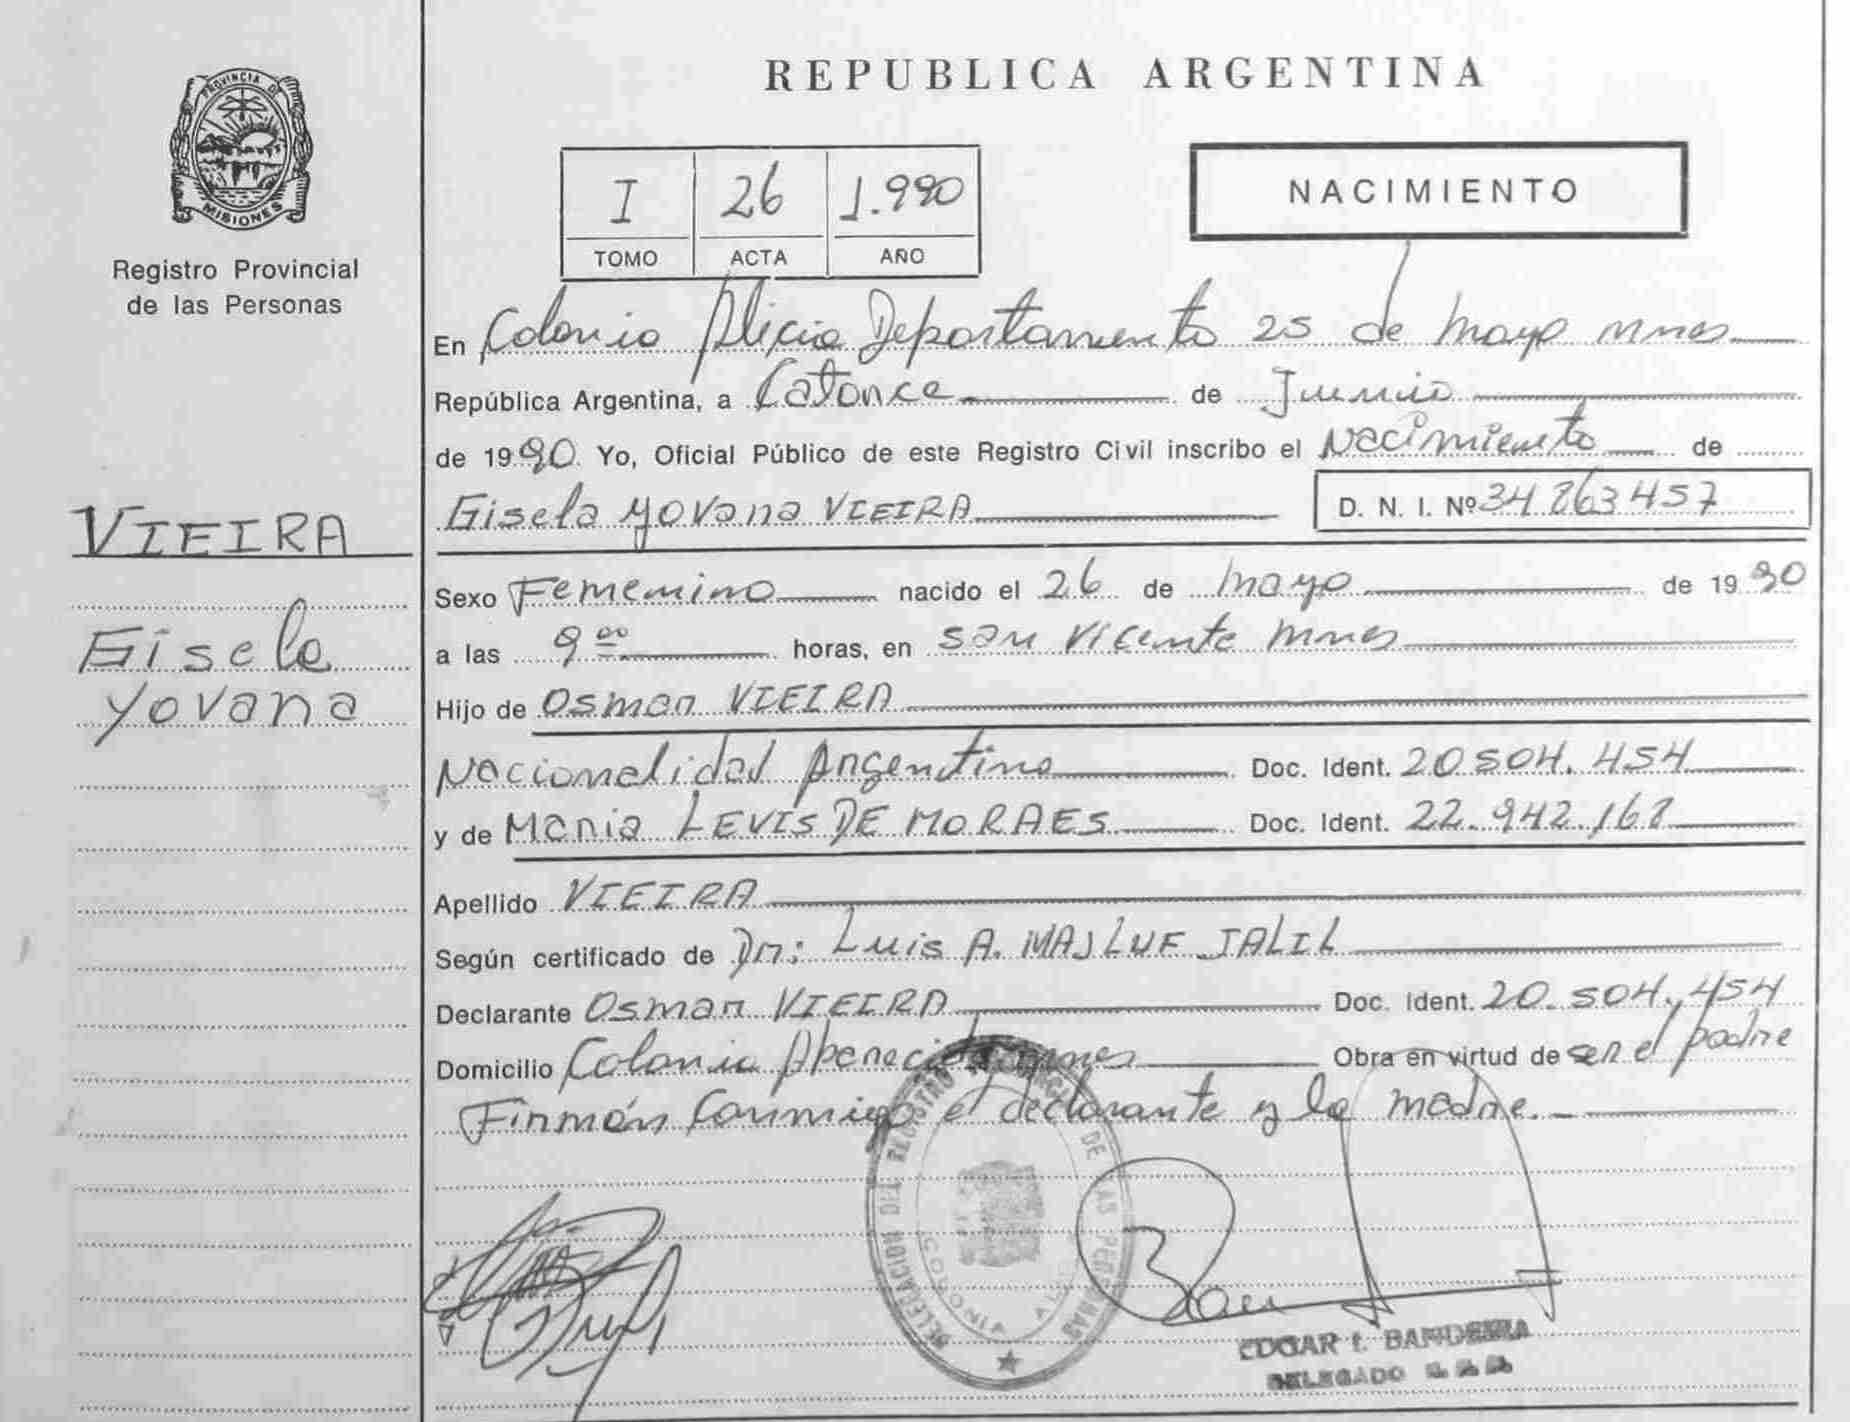 REPUBLICA ARGENTINA
PROVINCIA DE
MISIONES
Registro Provincial
de las Personas
I 26 1.990
TOMO ACTA AÑO
NACIMIENTO
En Colonia Alicia Departamento 25 de mayo mnes
República Argentina, a Catorce de Junio
de 1990 Yo, Oficial Público de este Registro Civil inscribo el Nacimiento de
Gisela Yovana VIEIRA D. N. I. Nº 34 863 457
VIEIRA
Gisela
Yovana
Sexo Femenino nacido el 26 de mayo de 1990
a las 9 00 horas, en San Vicente mnes
Hijo de Osmar VIEIRA
Nacionalidad Argentina Doc. Ident. 20 504.454
y de Maria LEVIS DE MORAES Doc. Ident. 22.942.168
Apellido VIEIRA
Según certificado de Dr: Luis A. MAJLUF JALIL
Declarante Osmar VIEIRA Doc. Ident. 20.504.454
Domicilio Colonia Aparecida mnes Obra en virtud de ser el padre
Firmán Conmigo el declarante y la madre.
DELEGACION DEL REGISTRO PROVINCIAL DE LAS PERSONAS
COLONIA
EDGAR I. BANDEIRA
DELEGADO